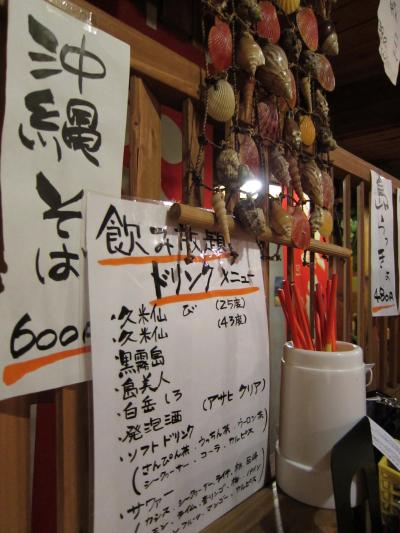 沖縄そば
600円
飲み放題
ドリンクメニュー
・久米仙 び (25度)
・久米仙 (43度)
・黒霧島
・島美人
・白岳しろ
・発泡酒 (アサヒ クリア)
・ソフトドリンク
(さんぴん茶・うっちん茶・ウーロン茶
シークヮーサー・コーラ・カルピス)
・サワァー
島らっきょ
480円